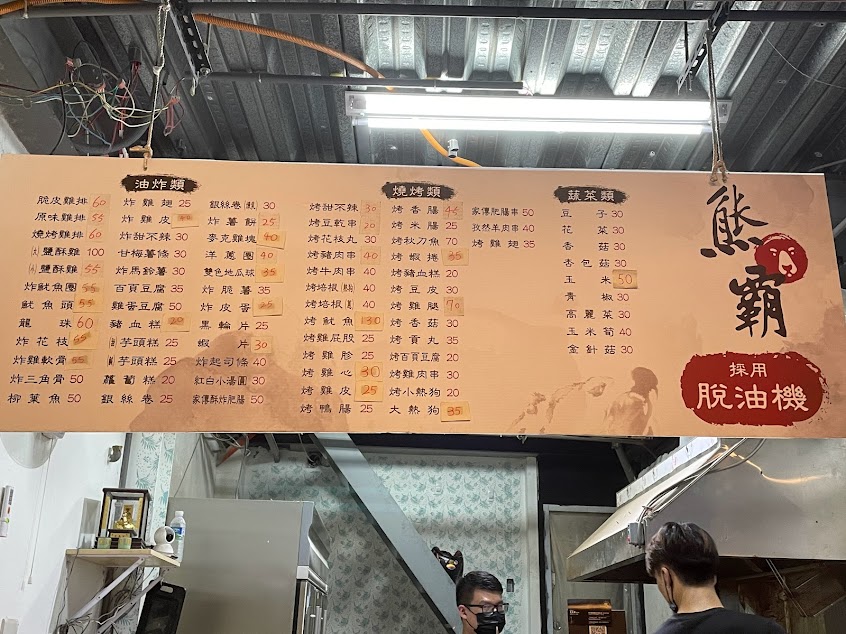 油炸類
脆皮雞排 60
原味雞排 55
燒烤雞排 60
(大)鹽酥雞 100
(小)鹽酥雞 55
炸魷魚圈 55
魷魚頭 55
龍珠 60
炸花枝
炸雞軟骨
炸三角骨 50
柳葉魚 50
炸雞翅 25
炸雞皮
炸甜不辣 30
甘梅薯條 30
炸馬鈴薯 30
百頁豆腐 35
雞蛋豆腐 50
豬血糕 20
芋頭糕 25
芋頭糕 25
蘿蔔糕 20
銀絲卷 25
銀絲卷 30
炸薯餅 25
麥克雞塊 40
洋蔥圈 40
雙色地瓜球 35
炸脆薯 35
炸皮蛋 25
黑輪片 25
蝦片 30
炸起司條 40
紅白小湯圓 30
家傳酥炸肥腸 50
燒烤類
烤甜不辣 30
烤豆乾串 20
烤花枝丸 30
烤豬肉串 40
烤牛肉串 40
烤培根 40
烤培根 40
烤魷魚 130
烤雞屁股 25
烤雞胗 25
烤雞心 30
烤雞皮 25
烤鴨腸 25
烤香腸 45
烤米腸 25
烤秋刀魚 70
烤蝦捲 35
烤豬血糕 20
烤豆皮 30
烤雞腿 70
烤香菇 30
烤貢丸 35
烤百頁豆腐 20
烤雞肉串 30
烤小熱狗 20
大熱狗 35
家傳肥腸串 50
孜然羊肉串 40
烤雞翅 35
蔬菜類
豆子 30
花菜 30
香菇 30
杏包菇 30
玉米 50
青椒 30
高麗菜 30
玉米筍 40
金針菇 30
熊霸
採用
脫油機